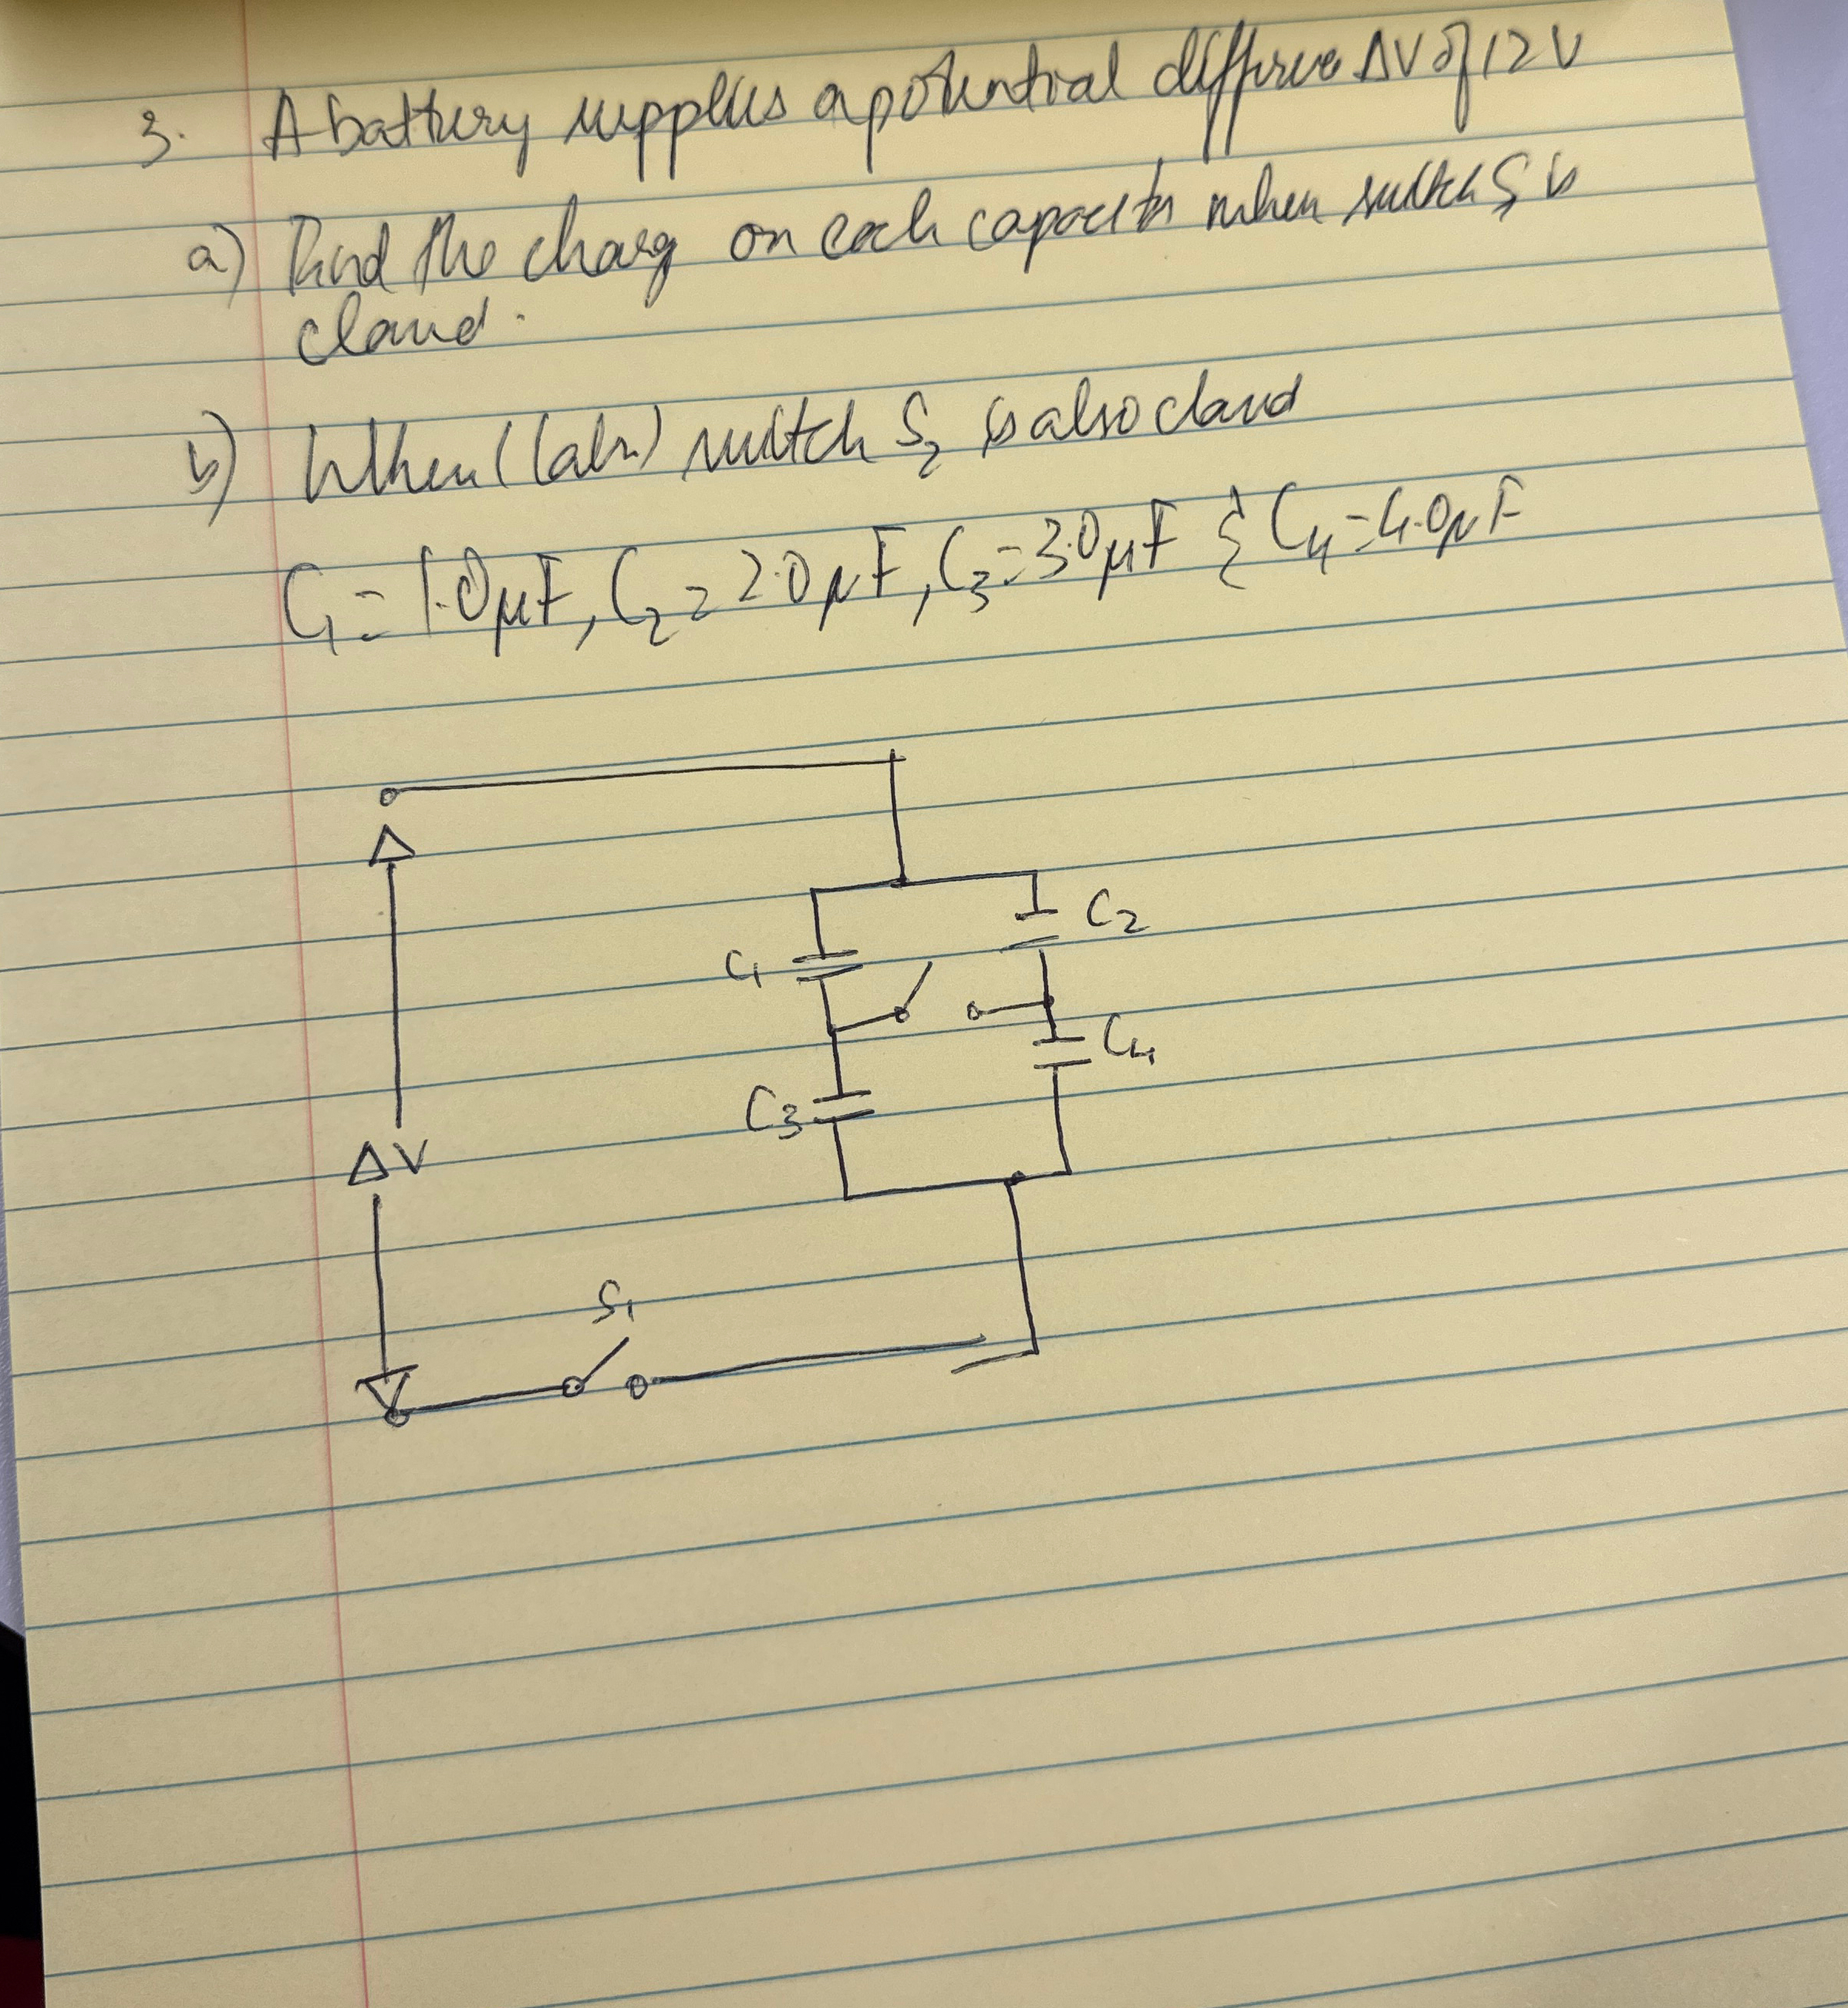 3. A battery supplies a potential difference ΔV of 12 V
a) Find the charg on each capacitor when switch S, is
closed.
b) When (later) switch S₂ is also closed
C₁ = 1.0μF, C₂ = 2.0μF, C₃ = 3.0μF & C₄ = 4.0μF
C₂
C₁
C₄
C₃
ΔV
S₁